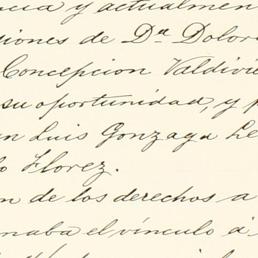 ncia y actualmen
ciones de Da Dolor
Concepcion Valdivi
su oportunidad, y p
n Luis Gonzaga Le
lo Florez.
n de los derechos a
naba el vínculo á